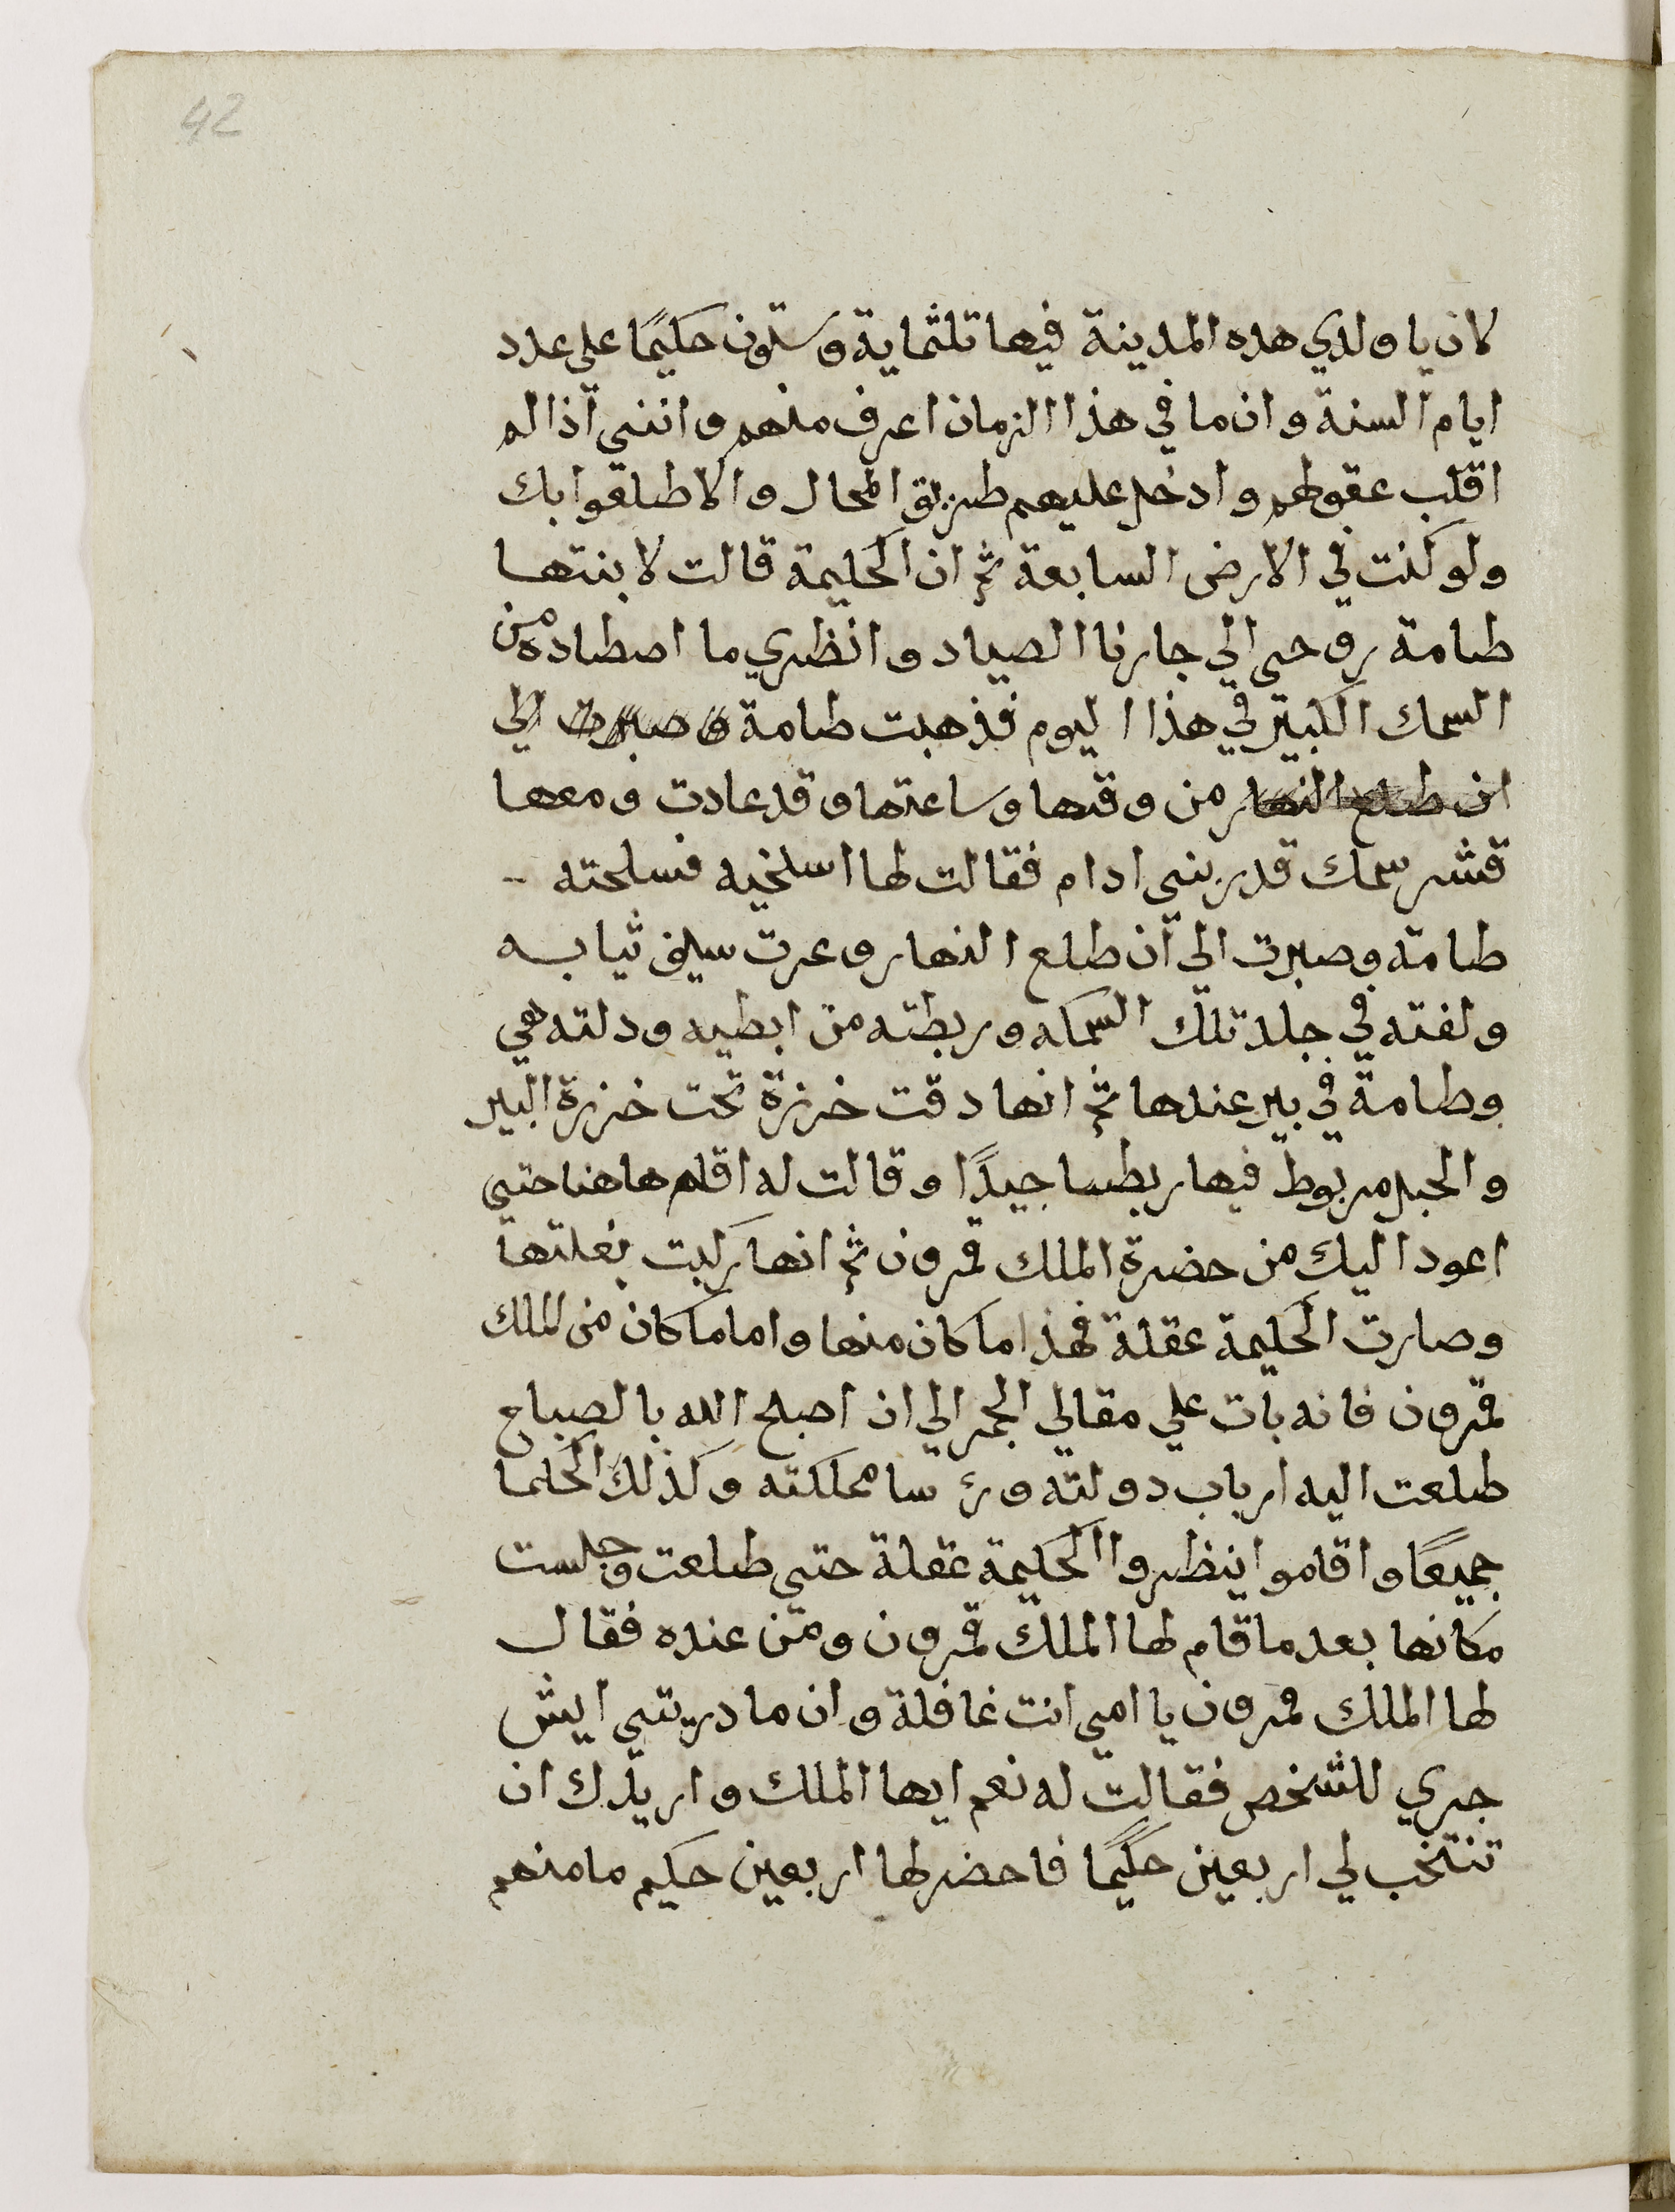 42
لان يا ولدي هده المدينة فيها تلثماية وستون حكيمًا على عدد
ايام السنة وان ما في هذا الزمان اعرف منهم وانني اذا لم
اقلب عقولهم وادخل عليهم طريق المحال والا طلقوا بك
ولو كنت في الارض السابعة ثم ان الحكيمة قالت لابنتها
طامة روحي الي جارنا الصياد وانظري ما اصطاده من
السمك الكبير في هذا اليوم فذهبت طامة وصبرت الي
ان طلع النهار من وقتها وساعتها وقد عادت ومعها
قشر سمك قدر بني ادام فقالت لها اسلخيه فسلحته
طامة وصبرت الى ان طلع النهار وعرت سيف ثيابه
ولفته في جلد تلك السمكه وربطته من ابطيه ودلته هي
وطامة في بير عندها ثم انها دقت خرزة تحت خرزة البير
والحبل مربوط فيها ربطا جيدًا وقالت له اقلم هاهنا حتي
اعود اليك من حضرة الملك قمرون ثم انها ركبت بغلتها
وصارت الحكيمة عقلة فهذا ما كان منها واما ما كان من الملك
قمرون فانه بات علي مقالي الجمر الي ان اصبح الله بالصباح
طلعت اليه ارباب دولته ورؤسا مملكته وكذلك الحكما
جميعًا واقاموا ينظروا الحكيمة عقلة حتي طلعت وجلست
مكانها بعد ما قام لها الملك قمرون ومن عنده فقال
لها الملك قمرون يا امي انت غافلة وان ما دريتي ايش
جري للشخص فقالت له نعم ايها الملك واريدك ان
تنتخب لي اربعين حكيمًا فاحضر لها اربعين حكيم ما منهم